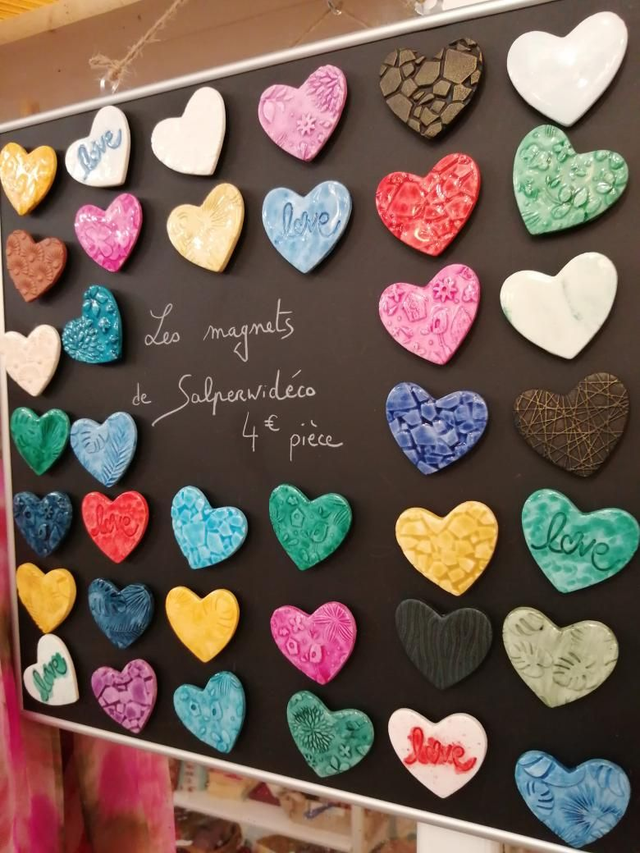 love
love
Les magnets
de Salperwidéco
4€ pièce
love
love
love
love